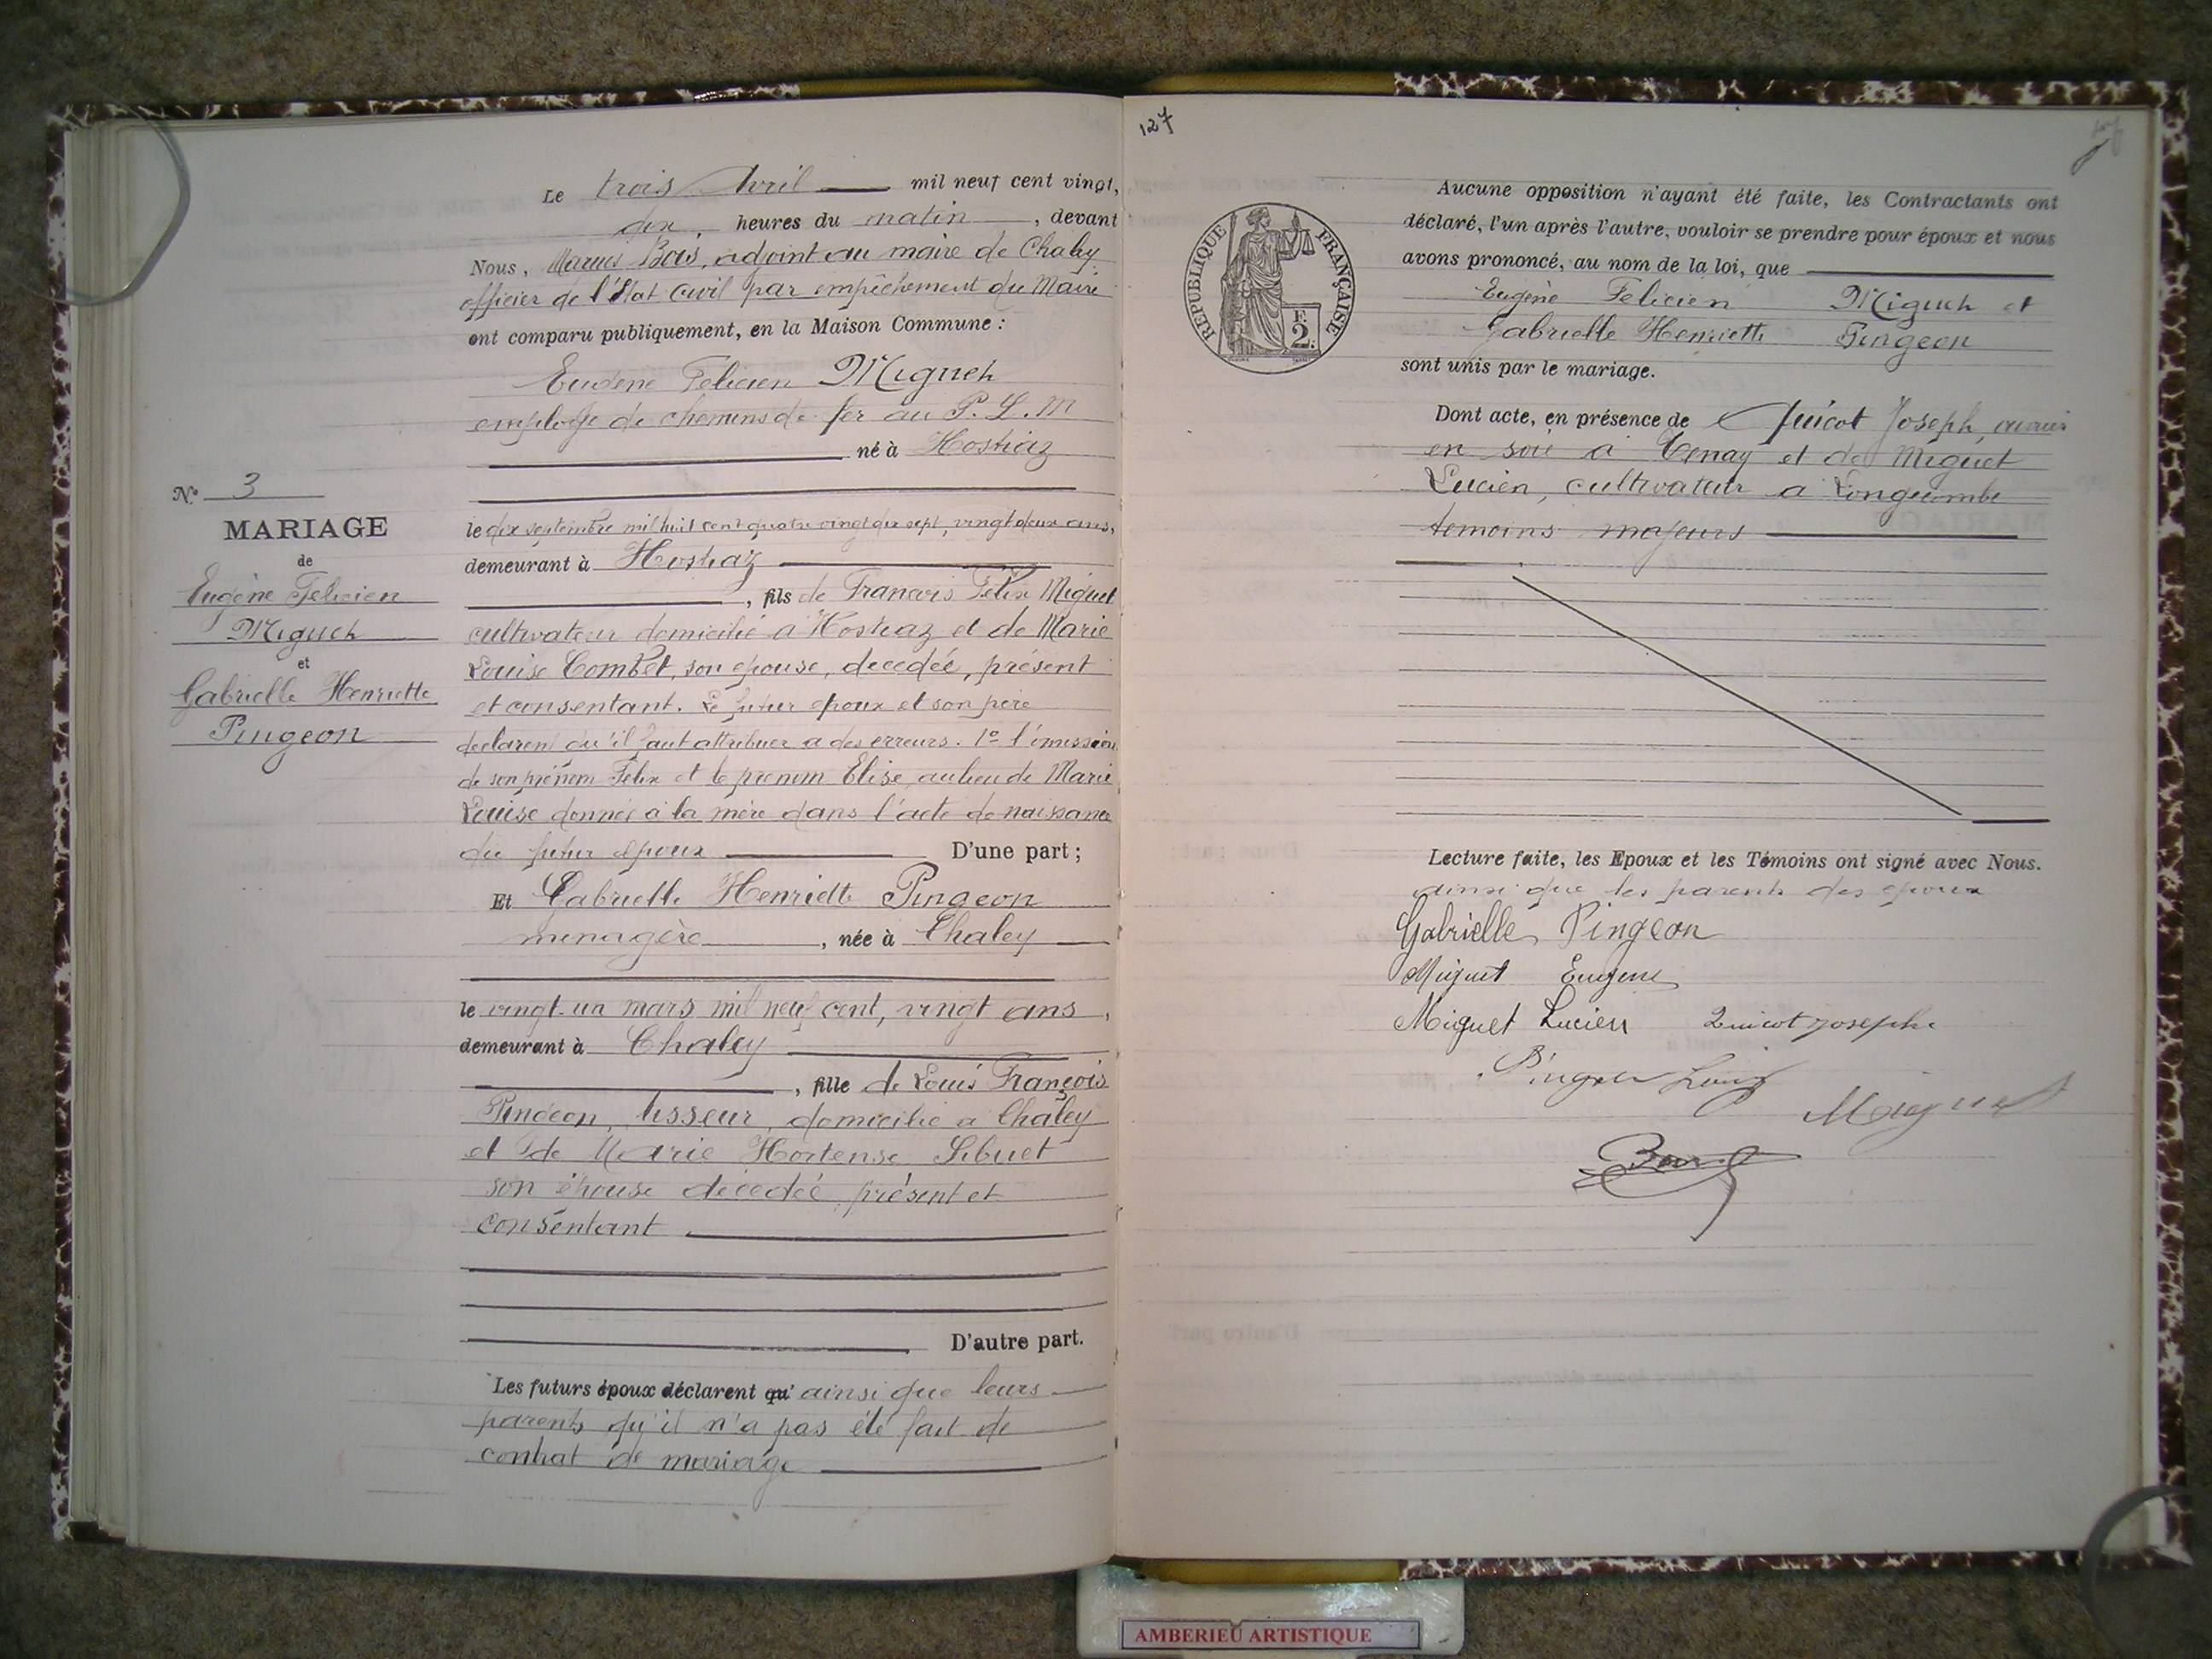 Le trois Avril mil neuf cent vingt,
dix, heures du matin, devant
Nous, Marius Bois, adjoint au maire de Chaley
officier de l'Etat civil par empêchement du Maire
ont comparu publiquement, en la Maison Commune :
Eugène Felicien Miguet
employé de chemins de fer au P. L. M
né à Hostiaz
le dix septembre mil huit cent quatre vingt dix sept, vingt deux ans,
demeurant à Hostiaz
, fils de Francois Félix Miguet
cultivateur domicilié a Hostiaz et de Marie
Louise Combet, son epouse, decedée, présent
et consentant. Le futur epoux et son père
declarent qu'il faut attribuer a des erreurs. 1º l'omission
de son prénom Félix et le prenom Elise, au lieu de Marie
Louise donnée à la mère dans l'acte de naissance
du futur epoux D'une part ;
Et Gabrielle Henriette Pingeon
ménagère, née à Chaley
le vingt-un mars mil neuf cent, vingt ans,
demeurant à Chaley
, fille de Louis François
Pingeon, tisseur, domicilié a Chaley
et de Marie Hortense Sibuet
son épouse décedée, présent et
consentant
D'autre part.
Les futurs époux déclarent qu' ainsi que leurs
parents qu'il n'a pas été fait de
contrat de mariage
Nº 3
MARIAGE
de
Eugène Felicien
Miguet
et
Gabrielle Henriette
Pingeon
127
REPUBLIQUE FRANÇAISE
F.
2.
Aucune opposition n'ayant été faite, les Contractants ont
déclaré, l'un après l'autre, vouloir se prendre pour époux et nous
avons prononcé, au nom de la loi, que
Eugène Felicien Miguet et
Gabrielle Henriette Pingeon
sont unis par le mariage.
Dont acte, en présence de Quicot Joseph, ouvrier
en soie à Tenay et de Miguet
Lucien, cultivateur a Longecombe
temoins majeurs
Lecture faite, les Epoux et les Témoins ont signé avec Nous.
ainsi que les parents des epoux
Gabrielle Pingeon
Miguet Eugene
Miguet Lucien Quicot Joseph
Pingeon Louis
Miguet
AMBERIEU ARTISTIQUE